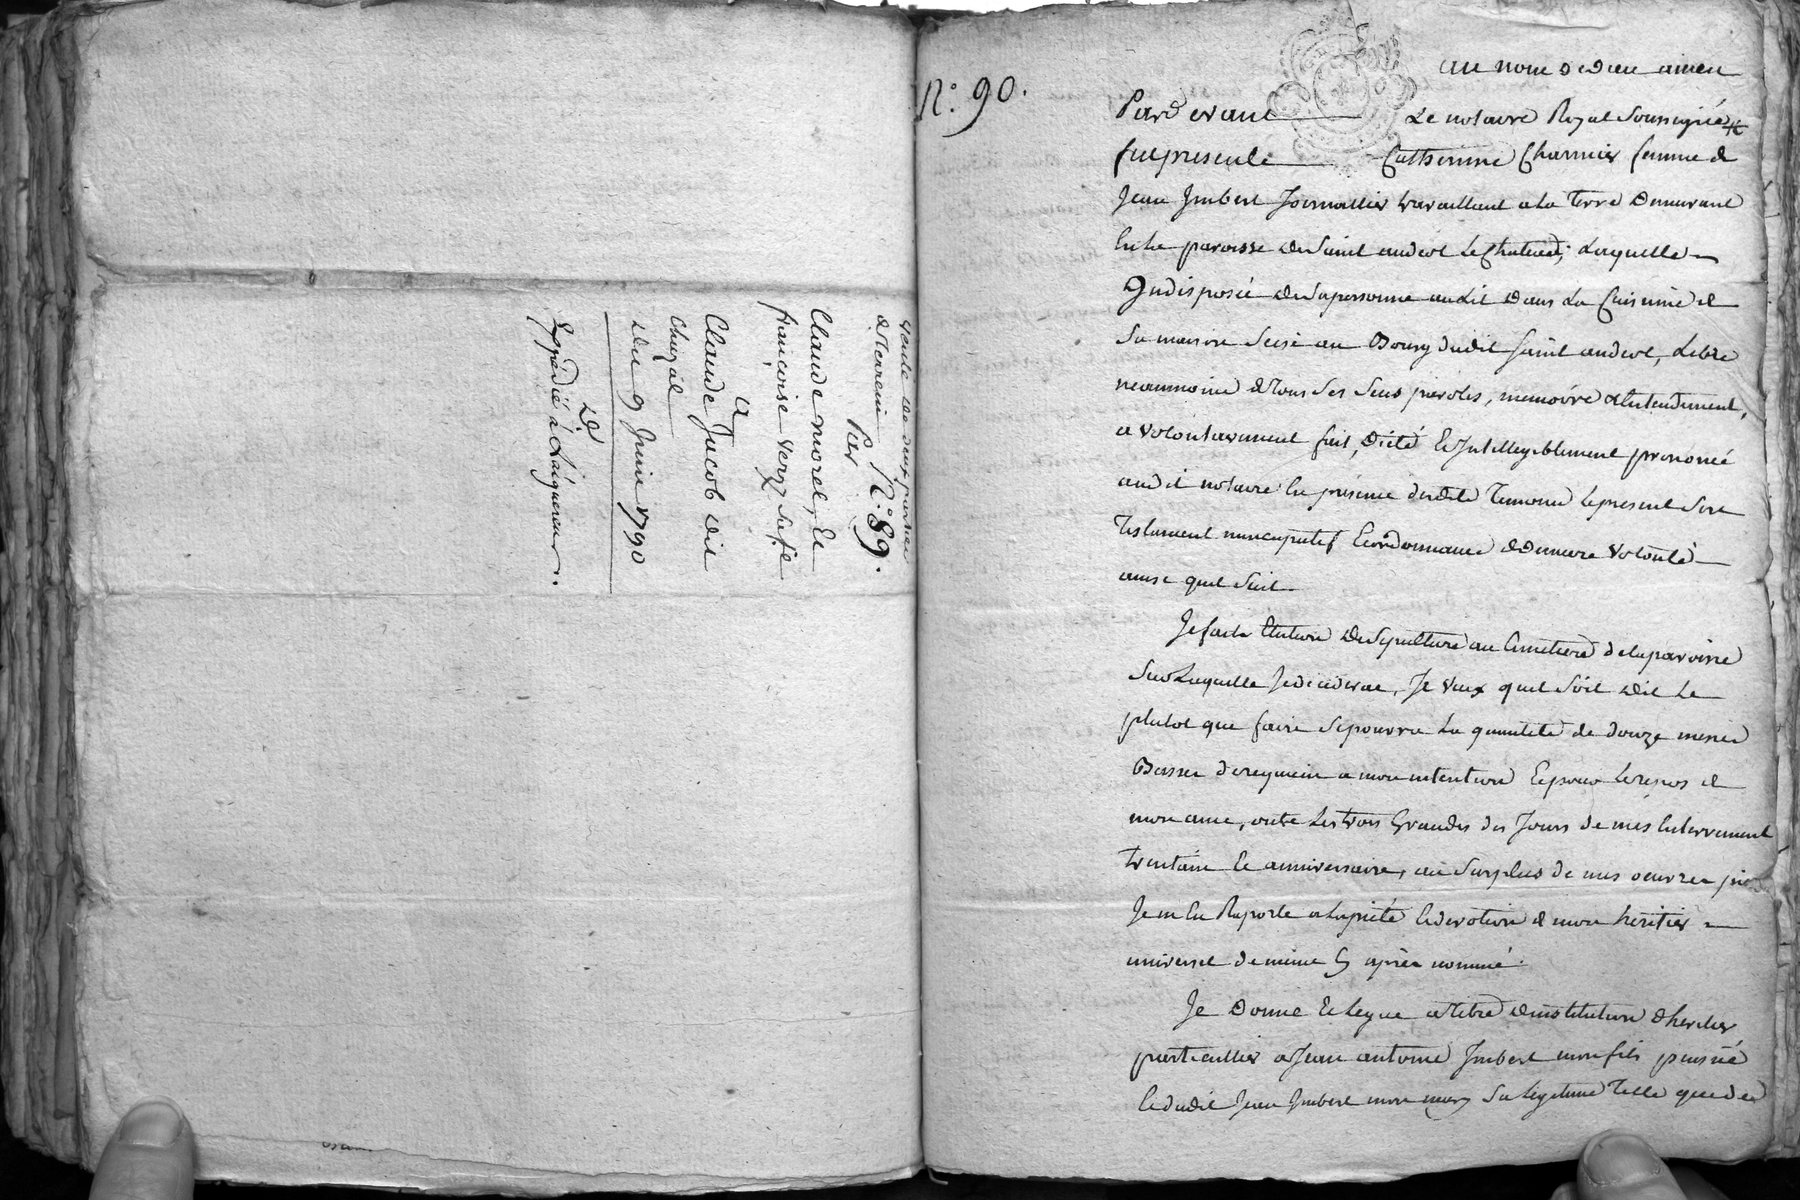 vente de deux parties
de terrein N.° 89.
Par
Claude morel, Et
françoise Verz sa fe
a
Claude Jacob dit
chazal
Du 9 Juin 1790
Expédié à l'aiguereur.
N.° 90.
au nom de dieu amen
Pardevant Le notaire Royal Soussigné
fut presente Catherinne Charmier femme de
Jean Imbert Journallier travaillant a la Terre Demeurant
En La paroisse de Saint andeol Le Chateau; Laquelle
Indisposée de Sa personne au Lit dans La Cuisinne de
Sa maison Scise au Bourg dudit Saint andeol, Libre
neanmoins de tous Ses Sens paroles, memoire et Entendement,
a Volontairement fait, Dicté Et Intelligiblement prononcé
audit notaire En presence desdits Temoins Le present Son
Testament nuncupatif Et ordonnance de derniere Volonté
ainsi quil Suit
Je fait Election de Sepulture au Cimetiere de la paroisse
Sur Laquelle Je decederai, Je Veux quil Soit dit Le
plutot que faire Se pourra La quantité de douze messes
Basses de requiem a mon intention Et pour Le repos de
mon ame, outre Les trois Grandes des Jours de mes Enterrement
trentain Et anniversaire, au Surplus de mes oeuvres pies
Je m'En Raporte a La pieté Et devotion de mon heritier
universel de meme Cy après nommé.
Je Donne Et Legue a titre d'institution d'heritier
particullier a Jean antoine Imbert mon fils puisné
Et dudit Jean Imbert mon mary Sa Legitime Telle que de